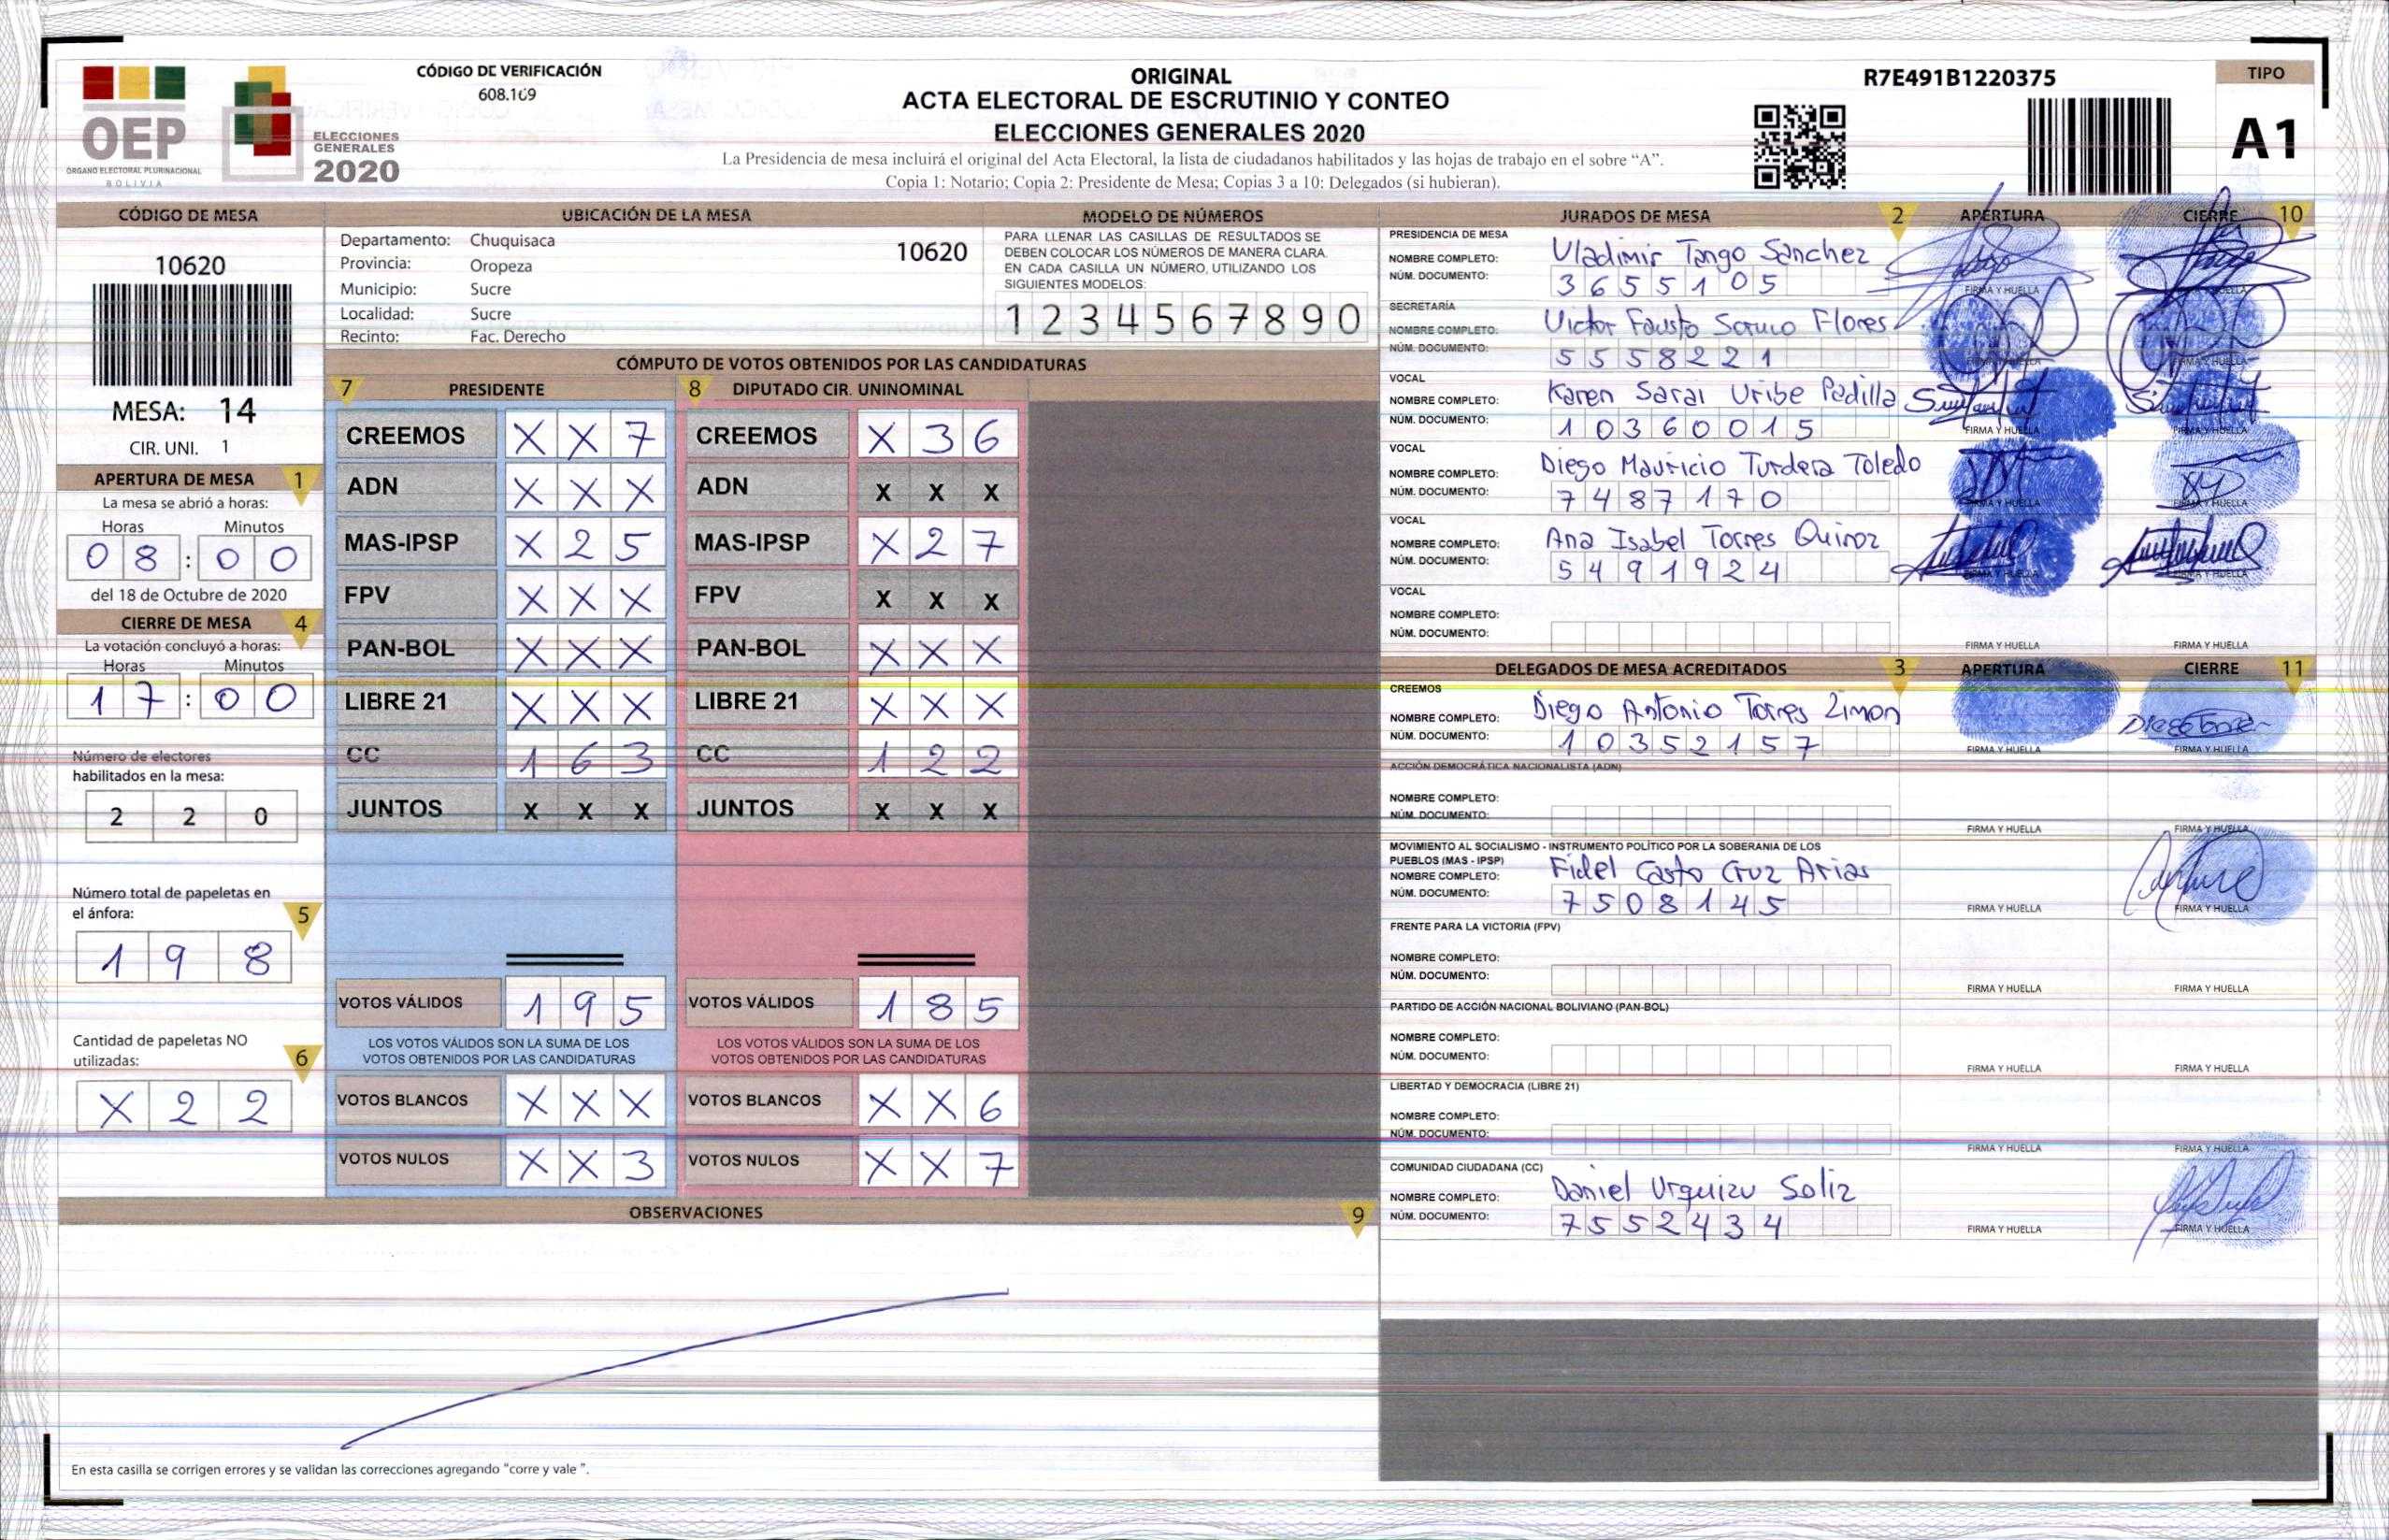 OEP
ÓRGANO ELECTORAL PLURINACIONAL
BOLIVIA
ELECCIONES
GENERALES
2020
CÓDIGO DE VERIFICACIÓN
608.169
ORIGINAL
ACTA ELECTORAL DE ESCRUTINIO Y CONTEO
ELECCIONES GENERALES 2020
La Presidencia de mesa incluirá el original del Acta Electoral, la lista de ciudadanos habilitados y las hojas de trabajo en el sobre “A”.
Copia 1: Notario; Copia 2: Presidente de Mesa; Copias 3 a 10: Delegados (si hubieran).
R7E491B1220375
TIPO
A1
CÓDIGO DE MESA
10620
MESA: 14
CIR. UNI. 1
APERTURA DE MESA 1
La mesa se abrió a horas:
Horas Minutos
08:00
del 18 de Octubre de 2020
CIERRE DE MESA 4
La votación concluyó a horas:
Horas Minutos
17:00
Número de electores
habilitados en la mesa:
2 2 0
Número total de papeletas en
el ánfora: 5
1 9 8
Cantidad de papeletas NO
utilizadas: 6
X 2 2
UBICACIÓN DE LA MESA
Departamento: Chuquisaca
10620
Provincia: Oropeza
Municipio: Sucre
Localidad: Sucre
Recinto: Fac. Derecho
MODELO DE NÚMEROS
PARA LLENAR LAS CASILLAS DE RESULTADOS SE
DEBEN COLOCAR LOS NÚMEROS DE MANERA CLARA.
EN CADA CASILLA UN NÚMERO, UTILIZANDO LOS
SIGUIENTES MODELOS:
1 2 3 4 5 6 7 8 9 0
CÓMPUTO DE VOTOS OBTENIDOS POR LAS CANDIDATURAS
7 PRESIDENTE 8 DIPUTADO CIR. UNINOMINAL
CREEMOS X X 7 CREEMOS X 3 6
ADN X X X ADN X X X
MAS-IPSP X 2 5 MAS-IPSP X 2 7
FPV X X X FPV X X X
PAN-BOL X X X PAN-BOL X X X
LIBRE 21 X X X LIBRE 21 X X X
CC 1 6 3 CC 1 2 2
JUNTOS X X X JUNTOS X X X
VOTOS VÁLIDOS 1 9 5 VOTOS VÁLIDOS 1 8 5
LOS VOTOS VÁLIDOS SON LA SUMA DE LOS LOS VOTOS VÁLIDOS SON LA SUMA DE LOS
VOTOS OBTENIDOS POR LAS CANDIDATURAS VOTOS OBTENIDOS POR LAS CANDIDATURAS
VOTOS BLANCOS X X X VOTOS BLANCOS X X 6
VOTOS NULOS X X 3 VOTOS NULOS X X 7
OBSERVACIONES 9
En esta casilla se corrigen errores y se validan las correcciones agregando “corre y vale”.
JURADOS DE MESA 2 APERTURA CIERRE 10
PRESIDENCIA DE MESA
NOMBRE COMPLETO: Vladimir Tango Sanchez
NÚM. DOCUMENTO: 3655105
FIRMA Y HUELLA FIRMA Y HUELLA
SECRETARÍA
NOMBRE COMPLETO: Victor Fausto Soruco Flores
NÚM. DOCUMENTO: 5558221
FIRMA Y HUELLA FIRMA Y HUELLA
VOCAL
NOMBRE COMPLETO: Karen Sarai Uribe Padilla
NÚM. DOCUMENTO: 10360015
FIRMA Y HUELLA FIRMA Y HUELLA
VOCAL
NOMBRE COMPLETO: Diego Mauricio Turdera Toledo
NÚM. DOCUMENTO: 7487170
FIRMA Y HUELLA FIRMA Y HUELLA
VOCAL
NOMBRE COMPLETO: Ana Isabel Torres Quiroz
NÚM. DOCUMENTO: 5491924
FIRMA Y HUELLA FIRMA Y HUELLA
VOCAL
NOMBRE COMPLETO:
NÚM. DOCUMENTO:
FIRMA Y HUELLA FIRMA Y HUELLA
DELEGADOS DE MESA ACREDITADOS 3 APERTURA CIERRE 11
CREEMOS
NOMBRE COMPLETO: Diego Antonio Torres Limon
NÚM. DOCUMENTO: 10352157
FIRMA Y HUELLA FIRMA Y HUELLA
ACCIÓN DEMOCRÁTICA NACIONALISTA (ADN)
NOMBRE COMPLETO:
NÚM. DOCUMENTO:
FIRMA Y HUELLA FIRMA Y HUELLA
MOVIMIENTO AL SOCIALISMO - INSTRUMENTO POLÍTICO POR LA SOBERANIA DE LOS
PUEBLOS (MAS - IPSP)
NOMBRE COMPLETO: Fidel Casto Cruz Arias
NÚM. DOCUMENTO: 7508145
FIRMA Y HUELLA FIRMA Y HUELLA
FRENTE PARA LA VICTORIA (FPV)
NOMBRE COMPLETO:
NÚM. DOCUMENTO:
FIRMA Y HUELLA FIRMA Y HUELLA
PARTIDO DE ACCIÓN NACIONAL BOLIVIANO (PAN-BOL)
NOMBRE COMPLETO:
NÚM. DOCUMENTO:
FIRMA Y HUELLA FIRMA Y HUELLA
LIBERTAD Y DEMOCRACIA (LIBRE 21)
NOMBRE COMPLETO:
NÚM. DOCUMENTO:
FIRMA Y HUELLA FIRMA Y HUELLA
COMUNIDAD CIUDADANA (CC)
NOMBRE COMPLETO: Daniel Urquizu Soliz
NÚM. DOCUMENTO: 7552434
FIRMA Y HUELLA FIRMA Y HUELLA